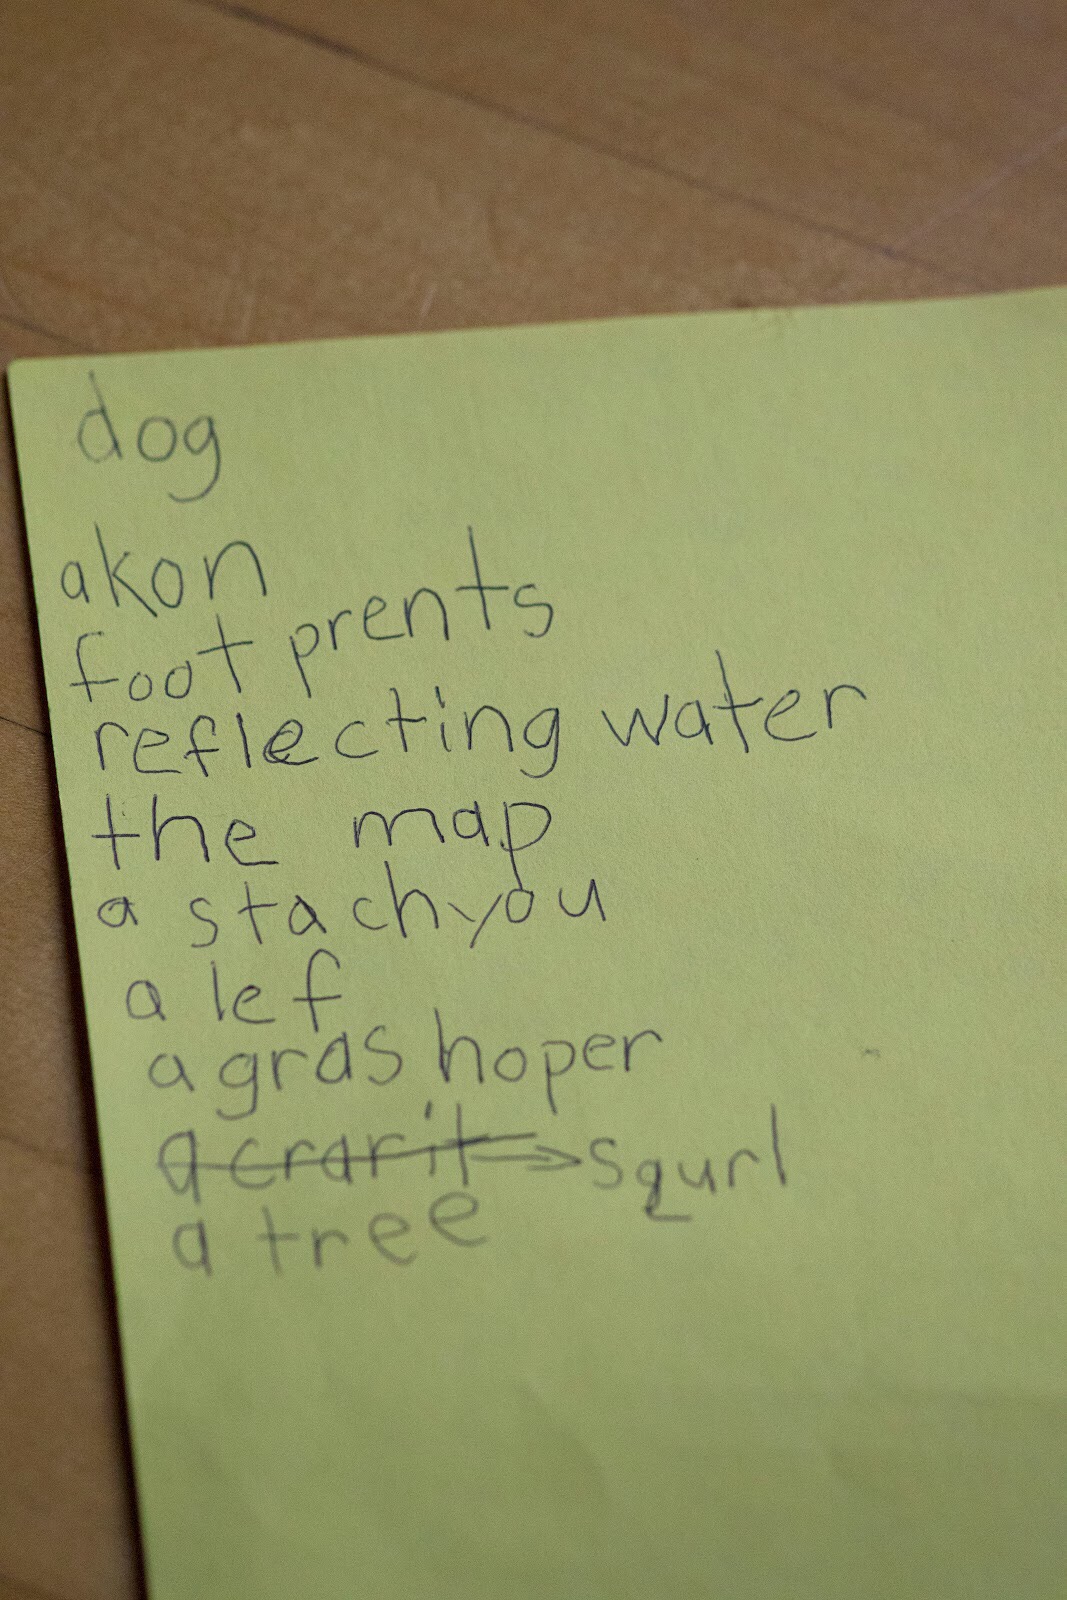 dog
akon
foot prents
reflecting water
the map
a stachyou
a lef
a gras hoper
a crarit squrl
a tree